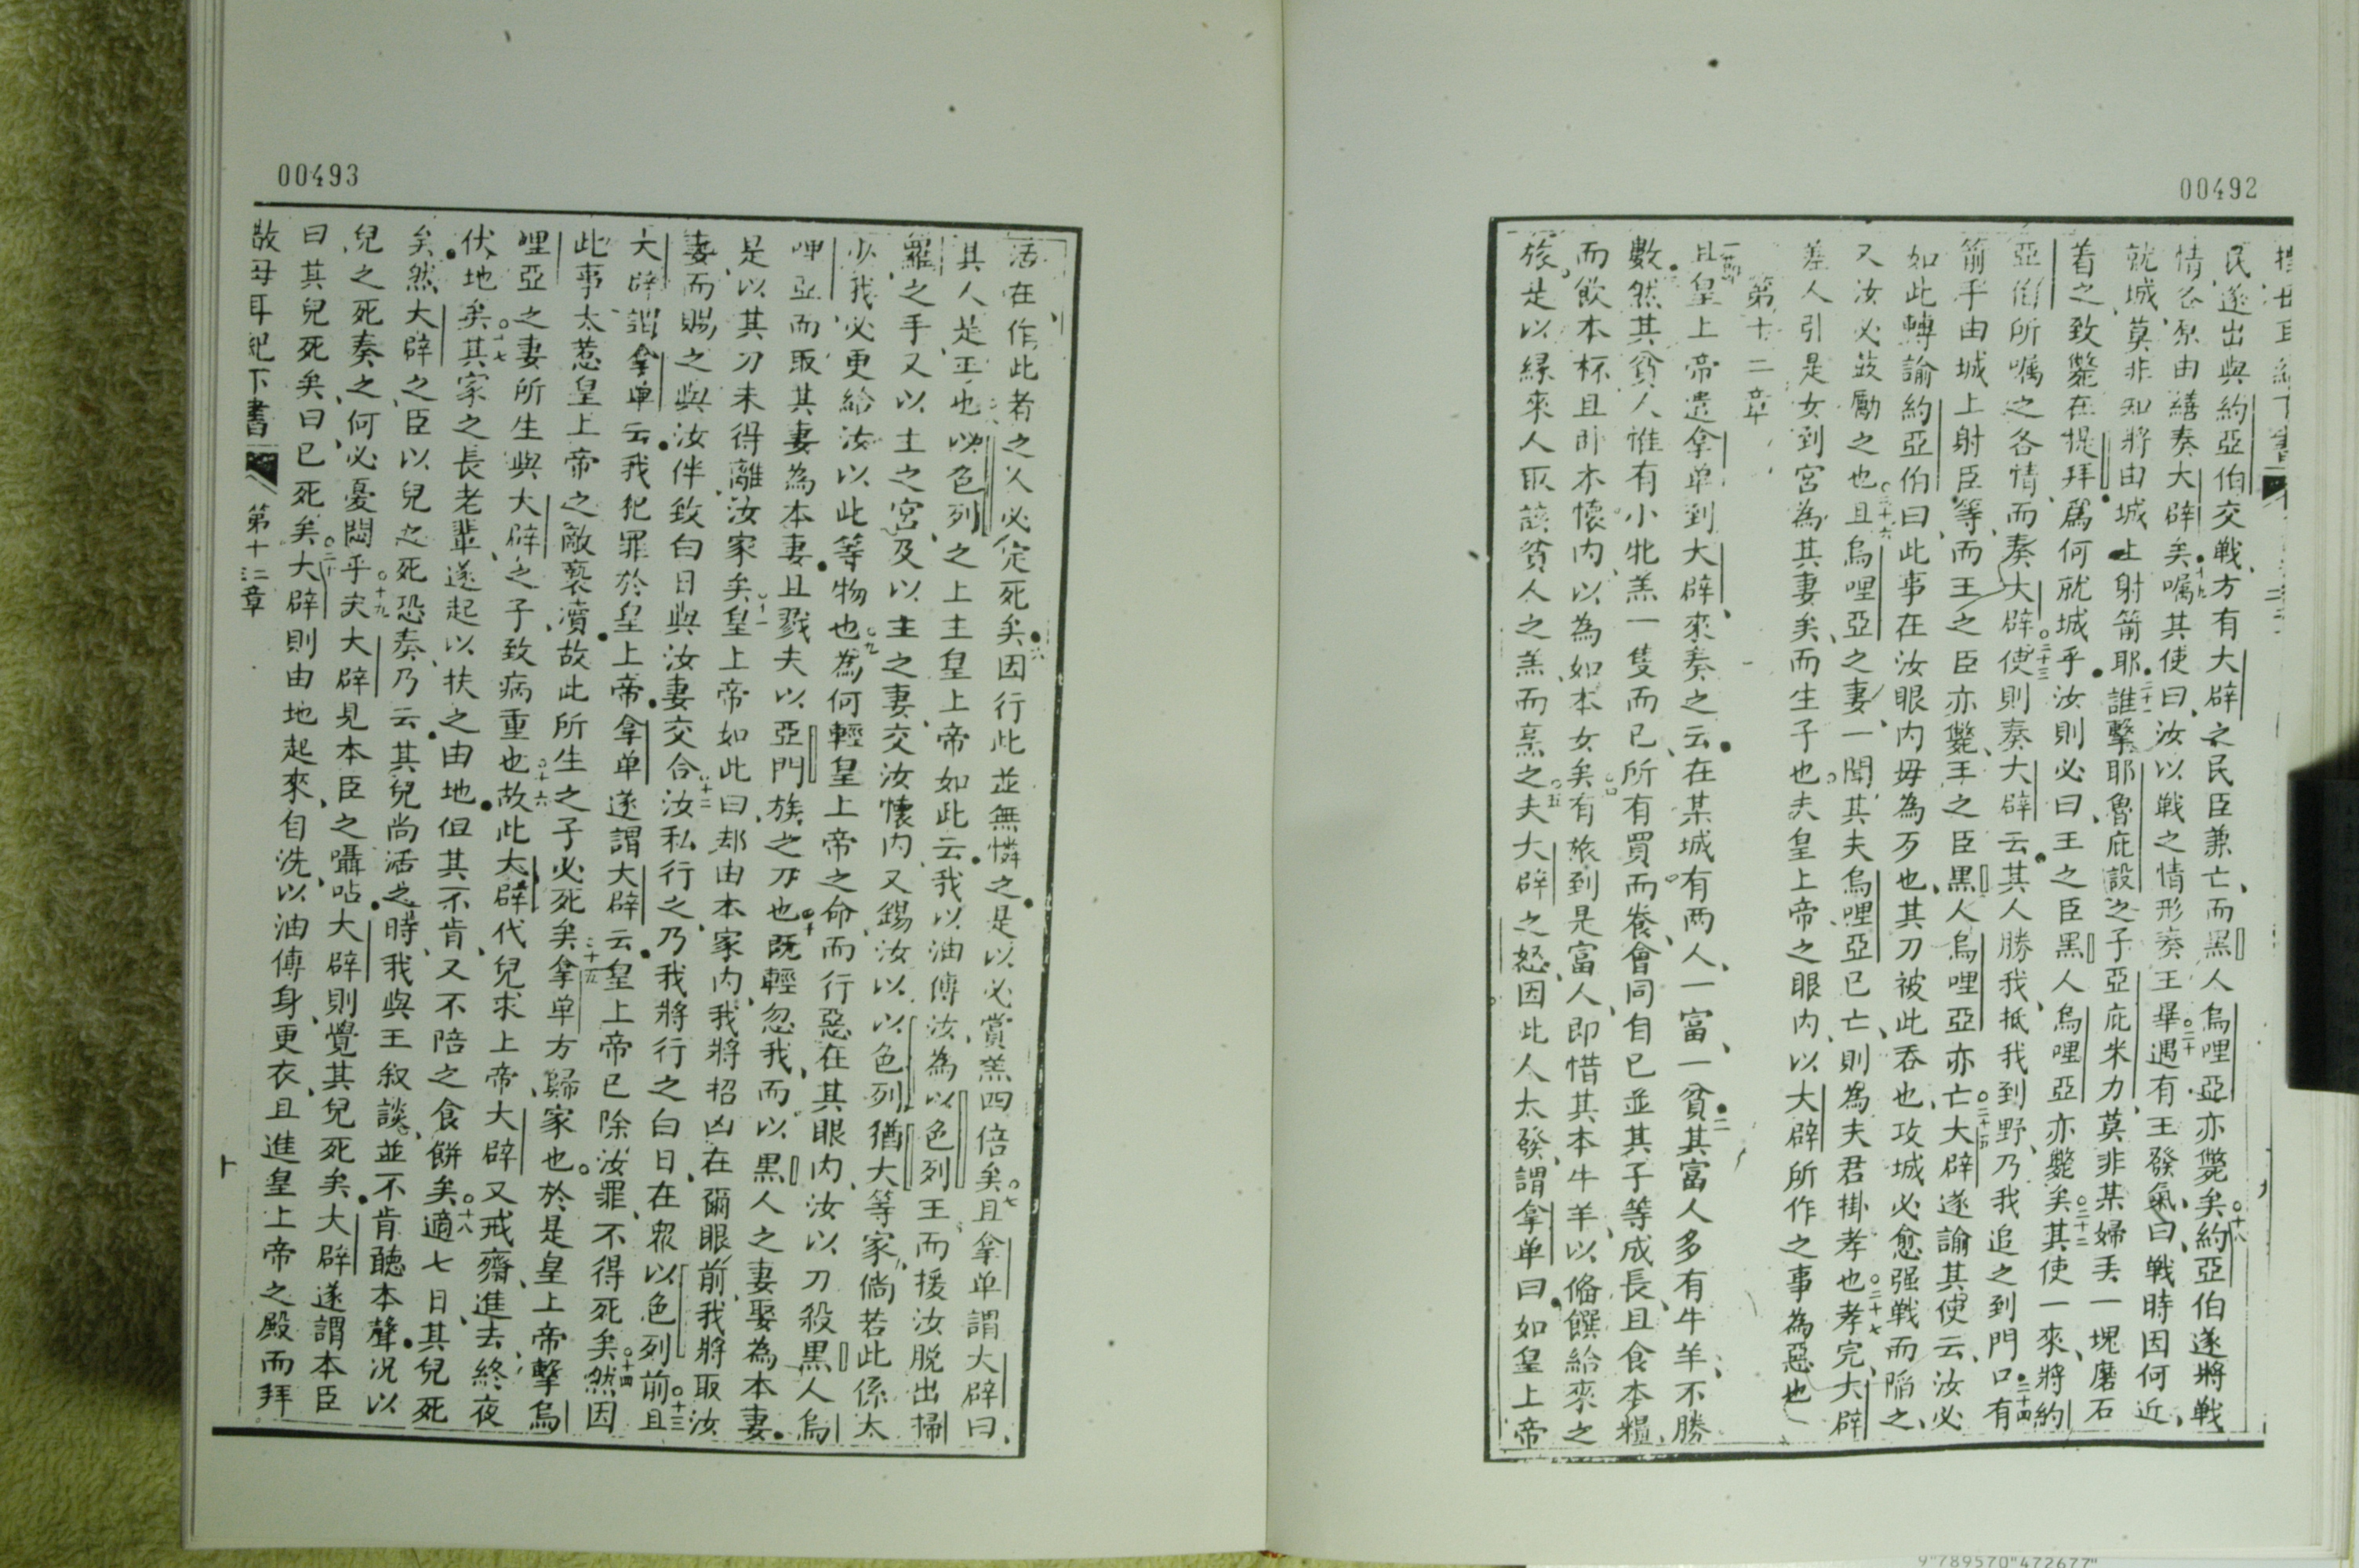 00492
民遂出與約亞伯交戰方有大辟之民臣兼亡而黑人烏哩亞亦斃矣十八約亞伯遂將戰
情各原由繕奏大辟矣十九囑其使曰汝以戰之情形奏王畢二十遇有王發氣曰戰時因何近
就城莫非知將由城上射箭耶二十一誰擊耶魯庇設之子亞庇米力莫非某婦丟一塊磨石
着之致斃在提拜爲何就城乎汝則必曰王之臣黑人烏哩亞亦斃矣二十二其使一來將約
亞伯所囑之各情而奏大辟二十三使則奏大辟云其人勝我抵我到野乃我追之到門口二十四有
箭手由城上射臣等而王之臣亦斃王之臣黑人烏哩亞亦亡二十五大辟遂諭其使云汝必
如此轉諭約亞伯曰此事在汝眼內毋為歹也其刀被此吞也攻城必愈强戰而陷之
又汝必鼓勵之也二十六且烏哩亞之妻一聞其夫烏哩亞已亡則為夫君掛孝也二十七孝完大辟
差人引是女到宮為其妻矣而生子也夫皇上帝之眼內以大辟所作之事為惡也
第十二章
一節且皇上帝遣拿单到大辟來奏之云在某城有两人一富一貧二其富人多有牛羊不勝
數三然其貧人惟有小牝羔一隻而已所有買而養會同自已並其子等成長且食本糧
而飲本杯且卧本懷內以為如本女矣四有旅到是富人即惜其本牛羊以俻饌給來之
旅是以縁來人取該貧人之羔而烹之五夫大辟之怒因此人太發謂拿单曰如皇上帝
00493
活在作此者之人必定死矣六因行此並無憐之是以必賞羔四倍矣七且拿单謂大辟曰
其人是王也以色列之上主皇上帝如此云我以油傅汝為以色列王而援汝脱出掃
羅之手八又以主之宮及以主之妻交汝懷內又錫汝以以色列猶大等家倘若此係太
少我必更給汝以此等物也九為何輕皇上帝之命而行惡在其眼內汝以刀殺黑人烏
哩亞而取其妻為本妻且戮夫以亞門族之刀也十既輕忽我而以黑人之妻娶為本妻
是以其刀未得離汝家矣十一皇上帝如此曰却由本家內我將招凶在爾眼前我將取汝
妻而賜之與汝伴致白日與汝妻交合十二汝私行之乃我將行之白日在眾以色列前十三且
大辟謂拿单云我犯罪於皇上帝拿单遂謂大辟云皇上帝已除汝罪不得死矣十四然因
此事太惹皇上帝之敵褻瀆故此所生之子必死矣十五拿单方歸家也於是皇上帝擊烏
哩亞之妻所生與大辟之子致病重也十六故此大辟代兒求上帝大辟又戒齋進去終夜
伏地矣十七其家之長老輩遂起以扶之由地但其不肯又不陪之食餅矣十八適七日其兒死
矣然大辟之臣以兒之死恐奏乃云其兒尚活之時我與王叙談並不肯聽本聲况以
兒之死奏之何必憂悶乎十九夫大辟見本臣之囁呫大辟則覺其兒死矣大辟遂謂本臣
曰其兒死矣曰已死矣二十大辟則由地起來自洗以油傅身更衣且進皇上帝之殿而拜
撒母耳紀下書 第十二章